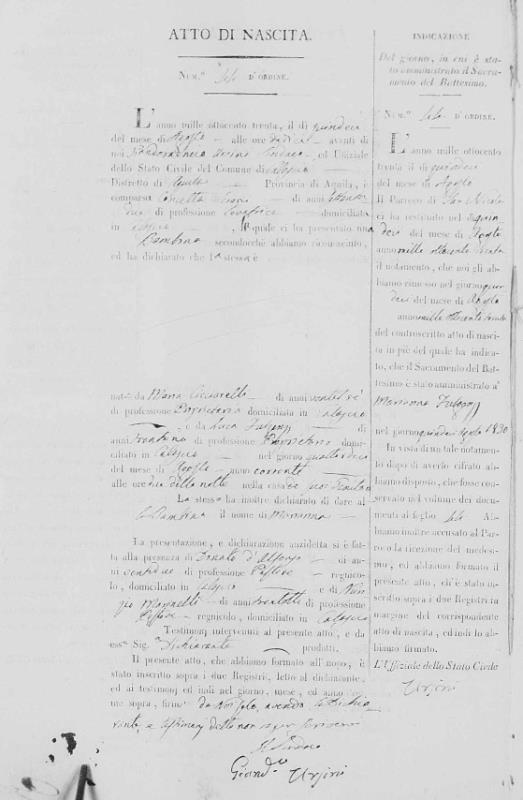 ATTO DI NASCITA.
NUM.° D'ORDINE.
L'anno mille ottocento trenta, il dì quindeci
del mese di Agosto — alle ore dodici — avanti di
noi Giandomenico Ursini Sindaco — ed Uffiziale
dello Stato Civile del Comune di
Distretto di Aquila — Provincia di Aquila, è
comparsa Concetta — di anni
due di professione — domiciliata
in — la quale ci ha presentato una
Bambina secondochè abbiamo riconosciuto,
ed ha dichiarato che la stessa è
nata da Maria Ciccarelli — di anni ventitré
di professione domiciliata
— e da Luca — di
anni trentuno di professione domi-
ciliato in — nel giorno quattordeci
del mese di Agosto — anno corrente —
alle ore dieci della notte nella casa de' suoi Genitori
La stessa ha inoltre dichiarato di dare al
la Bambina il nome di Marianna —
La presentazione, e dichiarazione anzidetta si è fat-
ta alla presenza di Donato d'Alfonzo — di an-
ni ventidue di professione Pastore — regnico-
lo, domiciliato in — e di Nun-
zio — di anni trentotto di professione
Pastore — regnicolo, domiciliato in
Testimonj intervenuti al presente atto, e da
essa Sig.ª Dichiarante — prodotti.
Il presente atto, che abbiamo formato all'uopo, è
stato inscritto sopra i due Registri, letto al dichiarante,
ed ai testimonj ed indi nel giorno, mese, ed anno come
sopra, firmato da Noi solo, avendo la Dichia-
rante, e testimonj detto non saper scrivere
Il Sindaco
Giand.co Ursini
INDICAZIONE
Del giorno, in cui è sta-
to amministrato il Sacra-
mento del Battesimo.
NUM.° D'ORDINE.
L'anno mille ottocento
trenta il dì quindeci
del mese di Agosto
Il Parroco di San Nicola
ci ha restituito nel dì quin
deci del mese di Agosto
anno mille ottocento trenta
il notamento, che noi gli ab-
biamo rimesso nel giorno quin
deci del mese di Agosto
anno mille ottocento trenta
del controscritto atto di nasci-
ta in piè del quale ha indica-
to, che il Sacramento del Bat-
tesimo è stato amministrato a
Marianna
nel giorno quindeci Agosto 1830
In vista di un tale notamento
dopo di averlo cifrato abbiamo
disposto, che fosse con-
servato nel volume dei docu-
menti al foglio Ab-
biamo inoltre accusato al Parro-
co la ricezione del medesi-
mo, ed abbiamo formato il
presente atto, ch'è stato in-
scritto sopra i due Registri in
margine del corrispondente
atto di nascita, ed indi lo ab-
biamo firmato.
L'Uffiziale dello Stato Civile
Ursini